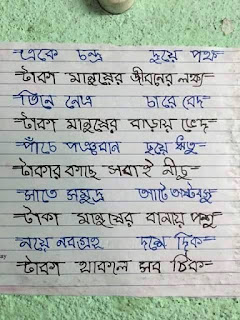 একে চন্দ্র দুয়ে পক্ষ
টাকা মানুষের জীবনের লক্ষ্য
তিনে নেত্র চারে বেদ
টাকা মানুষের বাড়ায় ভেদ
পাঁচে পঞ্চবান ছয়ে ঋতু
টাকার কাছে সবাই নীচু
সাতে সমুদ্র আটে অষ্টবসু
টাকা মানুষের বানায় পশু
নয়ে নবগ্রহ দশে দিক
টাকা থাকলে সব ঠিক